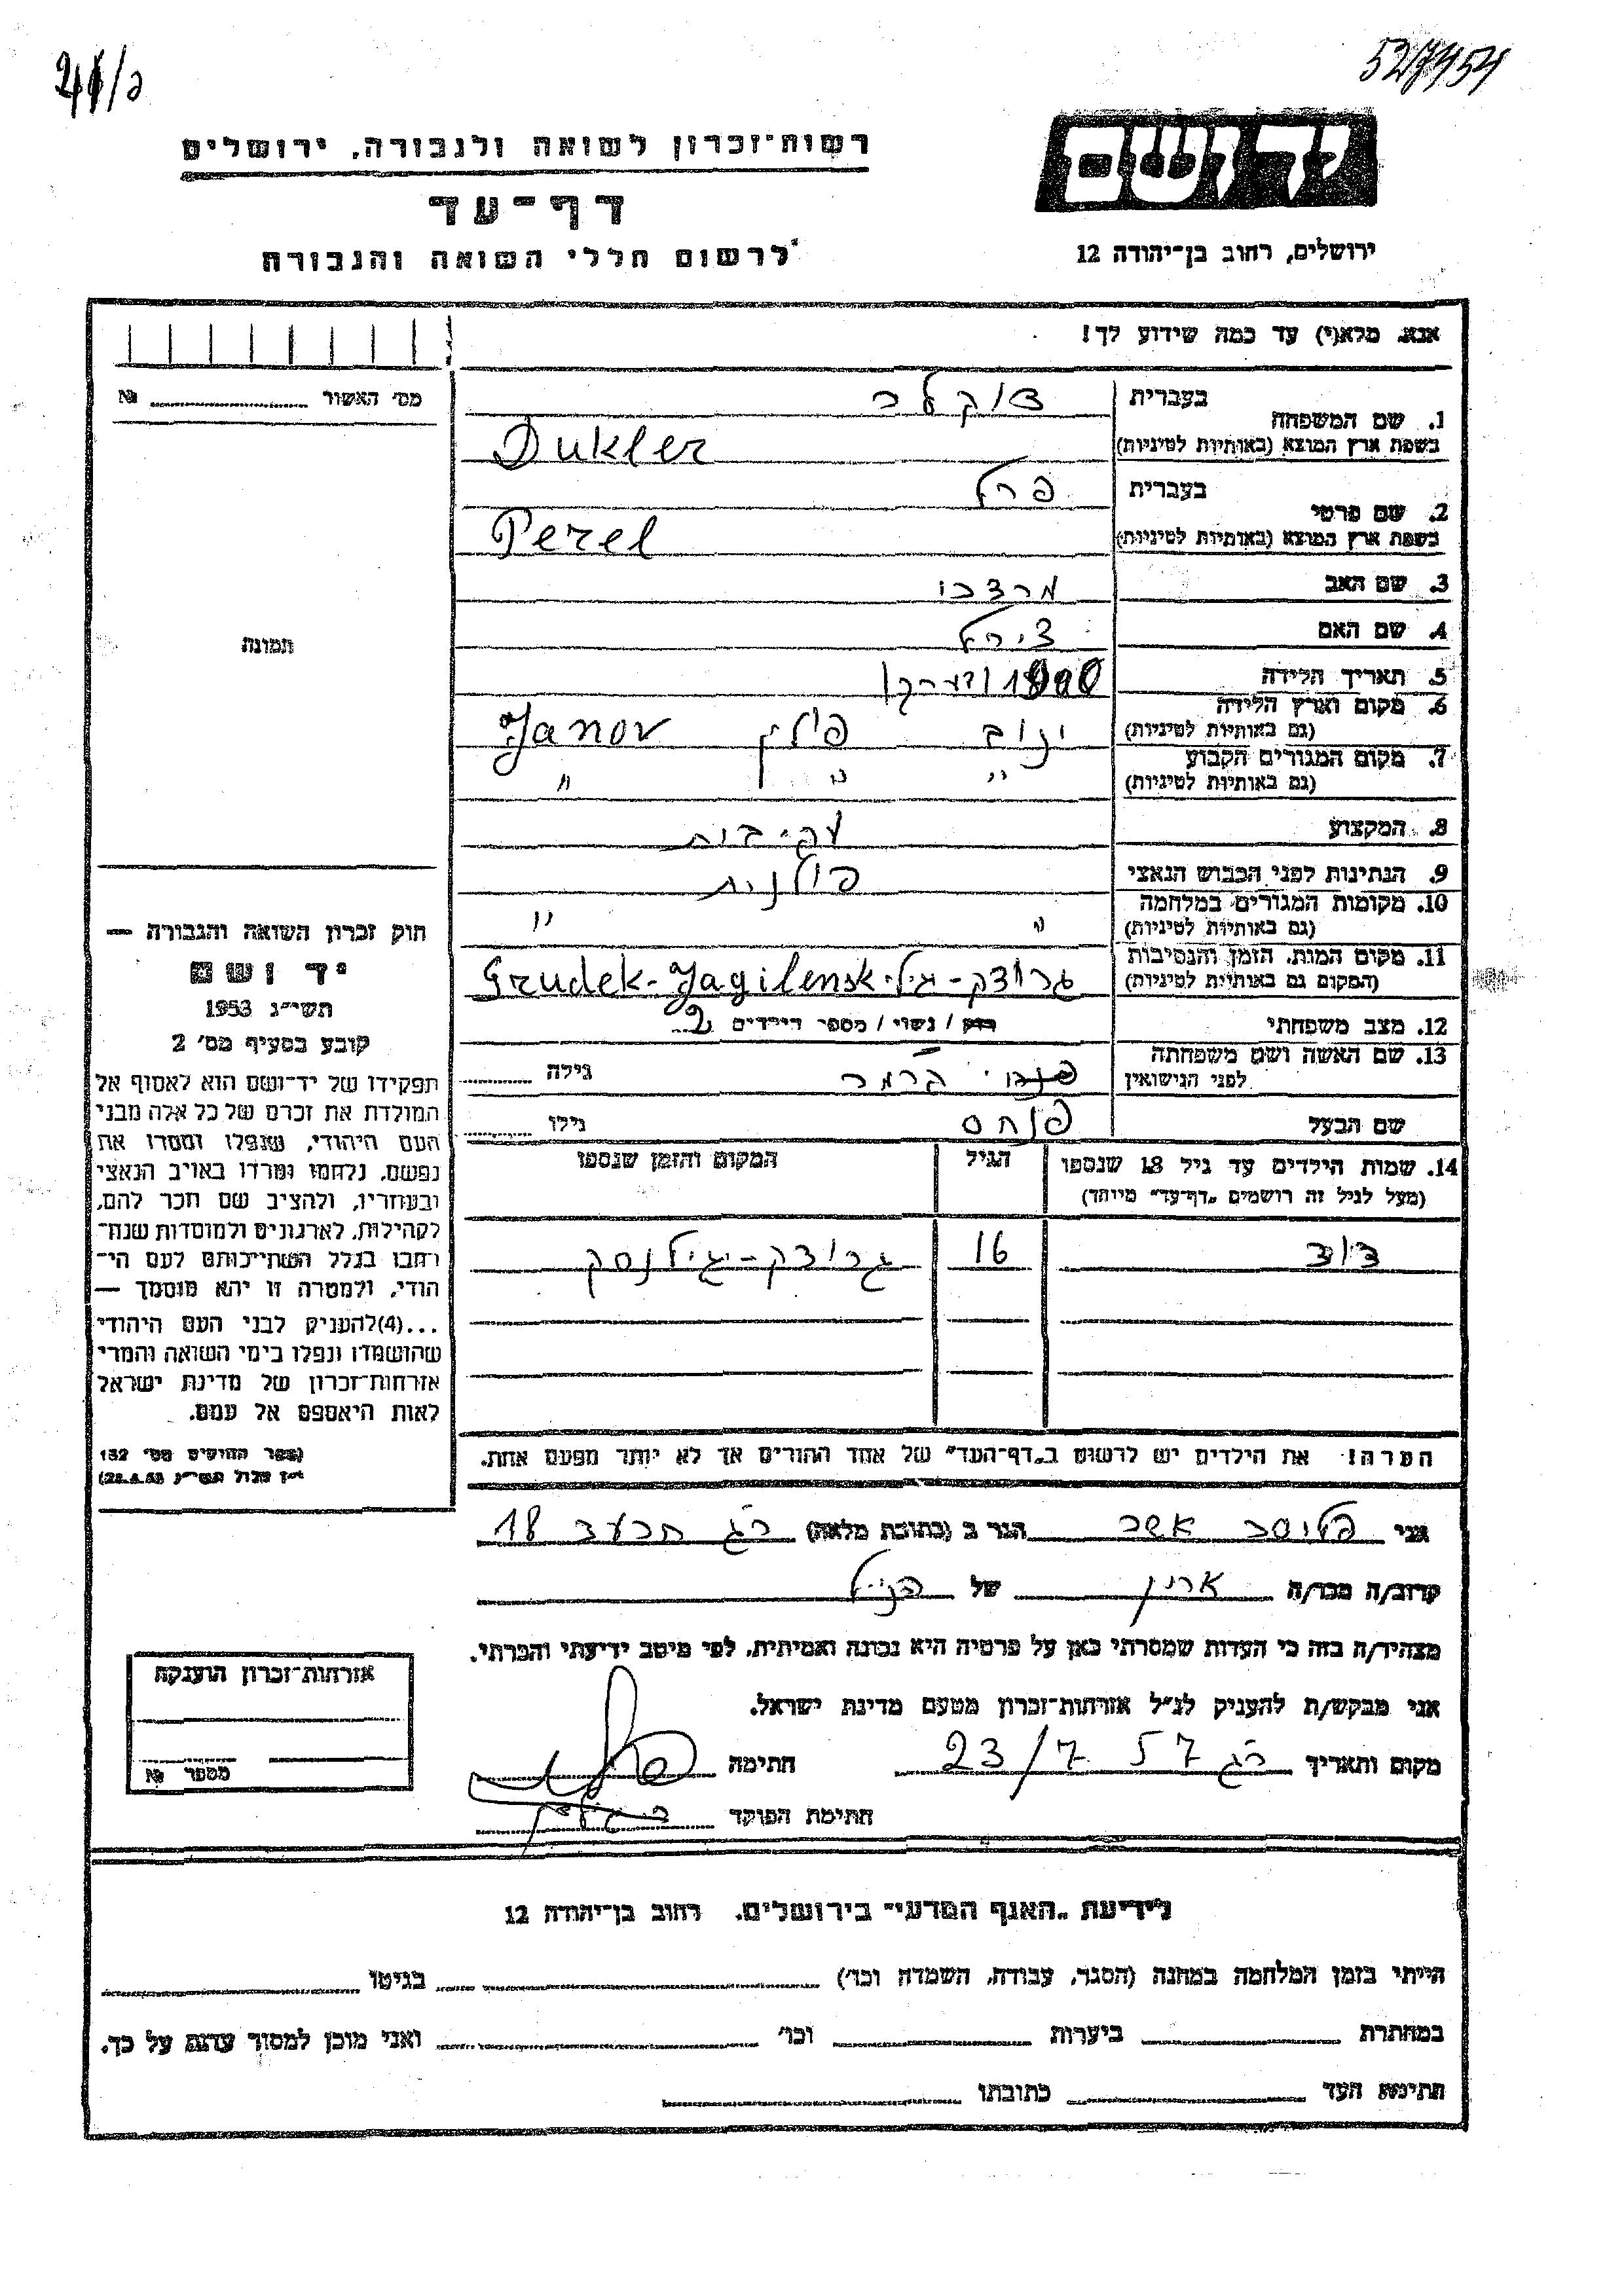 527454
24/כ
רשות-זכרון לשואה ולגבורה, ירושלים
דף-עד
לרשום חללי השואה והגבורה
יד ושם
ירושלים, רחוב בן-יהודה 12
אנא, מלא(י) עד כמה שידוע לך!
מס' האשור №
תמונה
1. שם המשפחה
בעברית דוקלר
בשפת ארץ המוצא (באותיות לטיניות) Dukler
2. שם פרטי
בעברית פרל
בשפת ארץ המוצא (באותיות לטיניות) Perel
3. שם האב מרדכי
4. שם האם צירל
5. תאריך הלידה 1900 (בערך)
6. מקום וארץ הלידה
(גם באותיות לטיניות) ינוב פולין Janov
7. מקום המגורים הקבוע
(גם באותיות לטיניות) " " "
8. המקצוע עק. בית
9. הנתינות לפני הכבוש הנאצי פולנית
10. מקומות המגורים במלחמה
(גם באותיות לטיניות) " "
11. מקום המות, הזמן והנסיבות
(המקום גם באותיות לטיניות) גרודק-יגיל. Grudek-Jagilensk
12. מצב משפחתי רוק / נשוי / מספר הילדים 2
13. שם האשה ושם משפחתה
לפני הנישואין קרמר גילה
שם הבעל פנחס גילו
14. שמות הילדים עד גיל 18 שנספו
(מעל לגיל זה רושמים „דף-עד" מיוחד)
הגיל
המקום והזמן שנספו
דוד 16 גרודק-יגילנסק
הערה: את הילדים יש לרשום ב„דף-העד" של אחד ההורים אך לא יותר מפעם אחת.
חוק זכרון השואה והגבורה —
יד ושם
תשי"ג 1953
קובע בסעיף מס' 2
תפקידו של יד-ושם הוא לאסוף אל
המולדת את זכרם של כל אלה מבני
העם היהודי, שנפלו ומסרו את
נפשם, נלחמו ומרדו באויב הנאצי
ובעוזריו, ולהציב שם וזכר להם,
לקהילות, לארגונים ולמוסדות שנח-
רבו בגלל השתייכותם לעם הי-
הודי, ולמטרה זו יהא מוסמך —
...(4)להעניק לבני העם היהודי
שהושמדו ונפלו בימי השואה והמרי
אזרחות-זכרון של מדינת ישראל
לאות היאספם אל עמם.
(ספר החוקים מס' 132
י"ז אלול תשי"ג 28.8.53)
אני פליסר אשר הגר ב (כתובת מלאה) ר"ג 18
קרוב/ה מכר/ה של הנ"ל
מצהיר/ה בזה כי העדות שמסרתי כאן על פרטיה היא נכונה ואמיתית, לפי מיטב ידיעתי והכרתי.
אני מבקש/ת להעניק לנ"ל אזרחות-זכרון מטעם מדינת ישראל.
מקום ותאריך ר"ג 23/7 57 חתימה
חתימת הפוקד
אזרחות-זכרון הוענקה
מספר №
לידיעת „האגף המדעי" בירושלים, רחוב בן-יהודה 12
הייתי בזמן המלחמה במחנה (הסגר, עבודה, השמדה וכו') בגיטו
במחתרת ביערות וכו' ואני מוכן למסור עדות על כך.
חתימת העד כתובתו